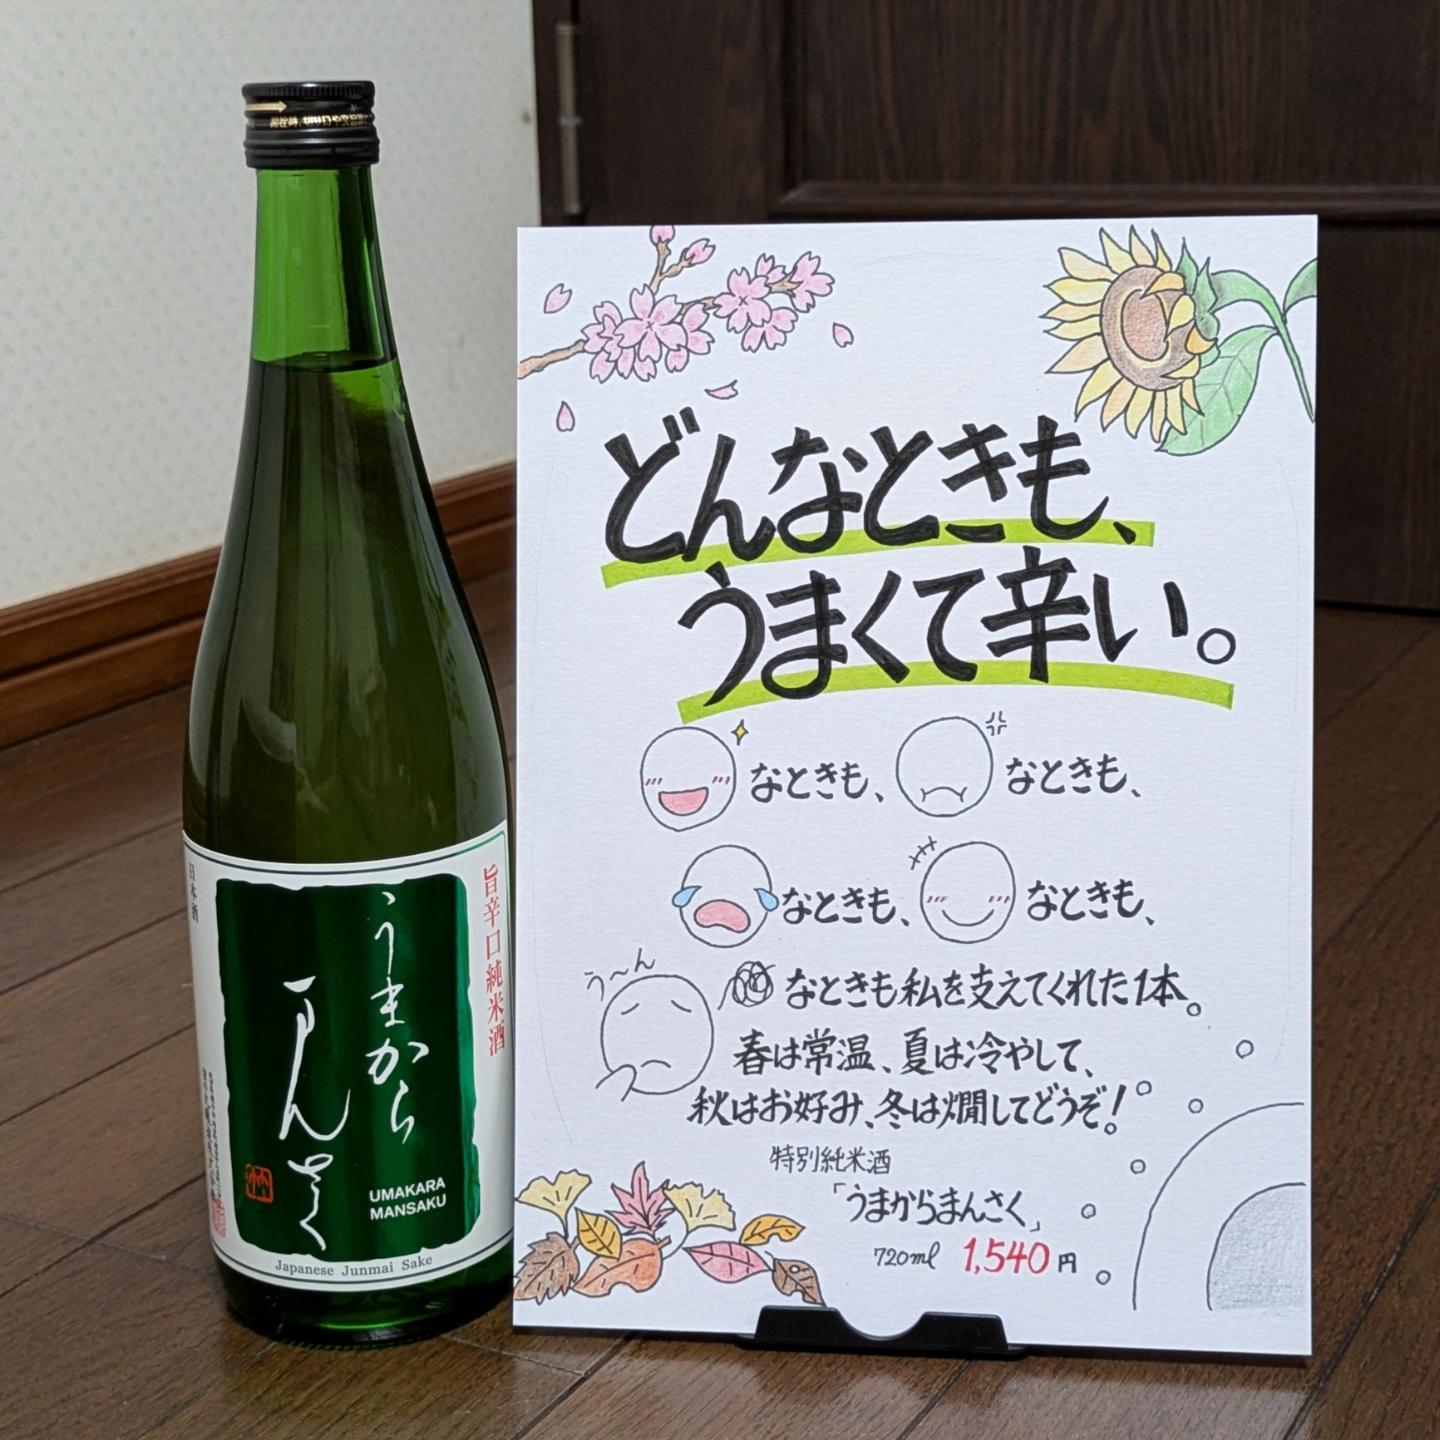 日本酒
旨辛口純米酒
うまから
まんさく
UMAKARA
MANSAKU
Japanese Junmai Sake
どんなときも、
うまくて辛い。
なときも、なときも、
なときも、なときも、
う〜ん
なときも私を支えてくれた1本。
春は常温、夏は冷やして、
秋はお好み、冬は燗してどうぞ!
特別純米酒
「うまからまんさく」
720ml 1,540円